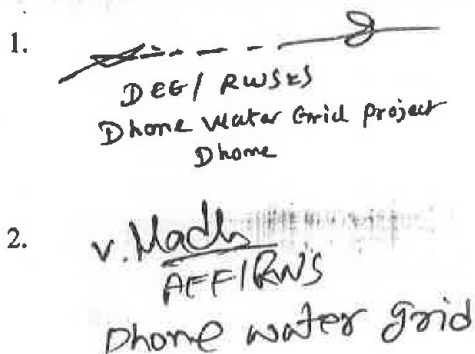 1.
DEE/ RWS&S
Dhone Water Grid Project
Dhone
2.
V. Madh
AEE/RWS
Dhone water grid